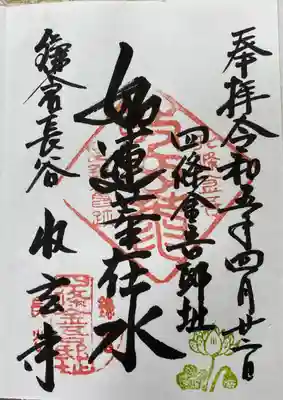 奉拝 令和五年四月廿二日
四條金吾邸址
如蓮華在水
鎌倉長谷 收玄寺